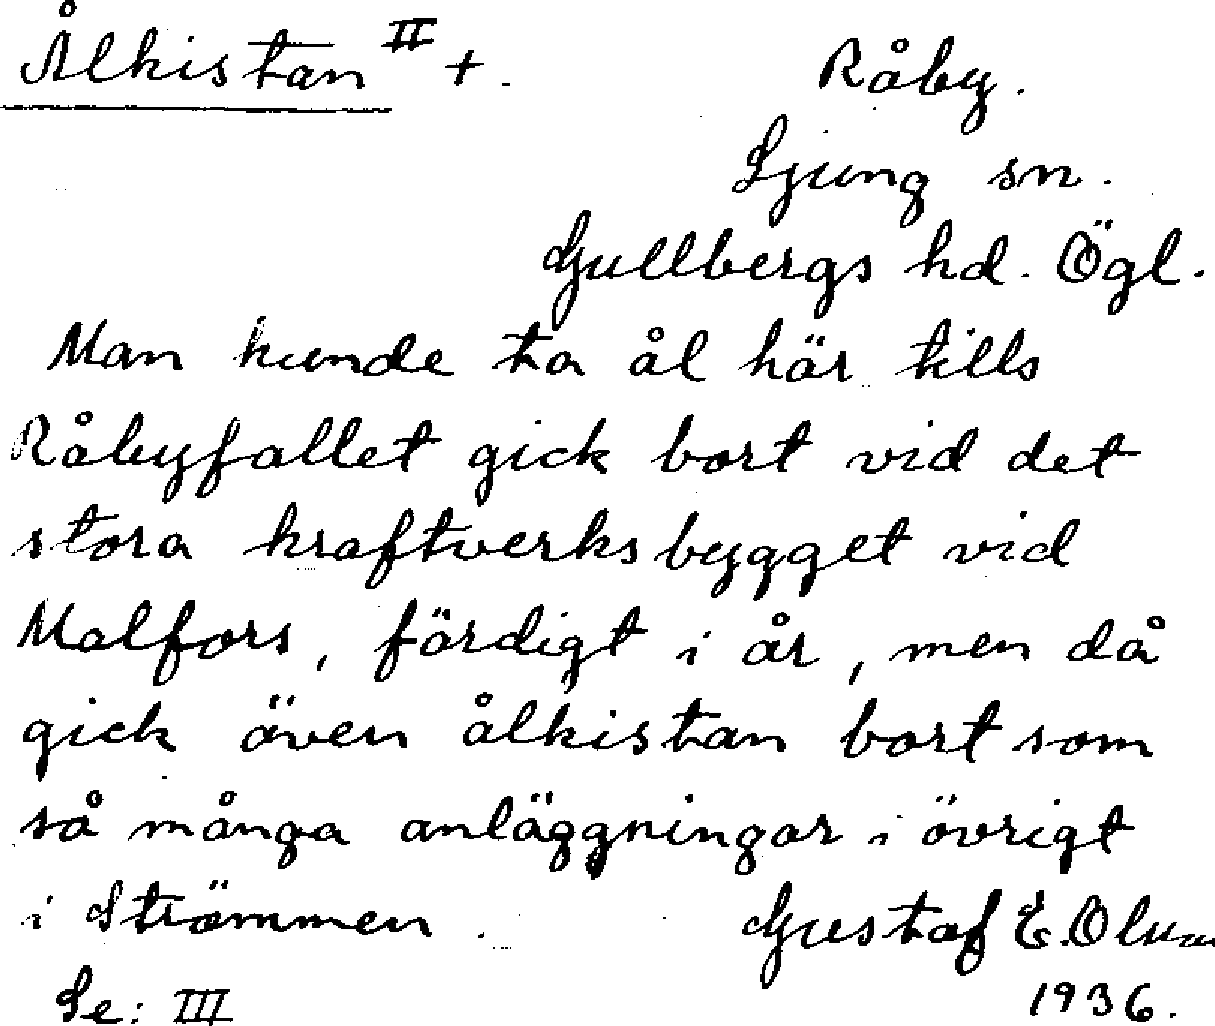 Ålkistan II +.
Råby.
Ljung sn.
Gullbergs hd. Ögl.
Man kunde ta ål här tills
Råbyfallet gick bort vid det
stora kraftverksbygget vid
Malfors, färdigt i år, men då
gick även ålkistan bort som
så många anläggningar i övrigt
i Strömmen.
Gustaf E.
Se: III
1936.